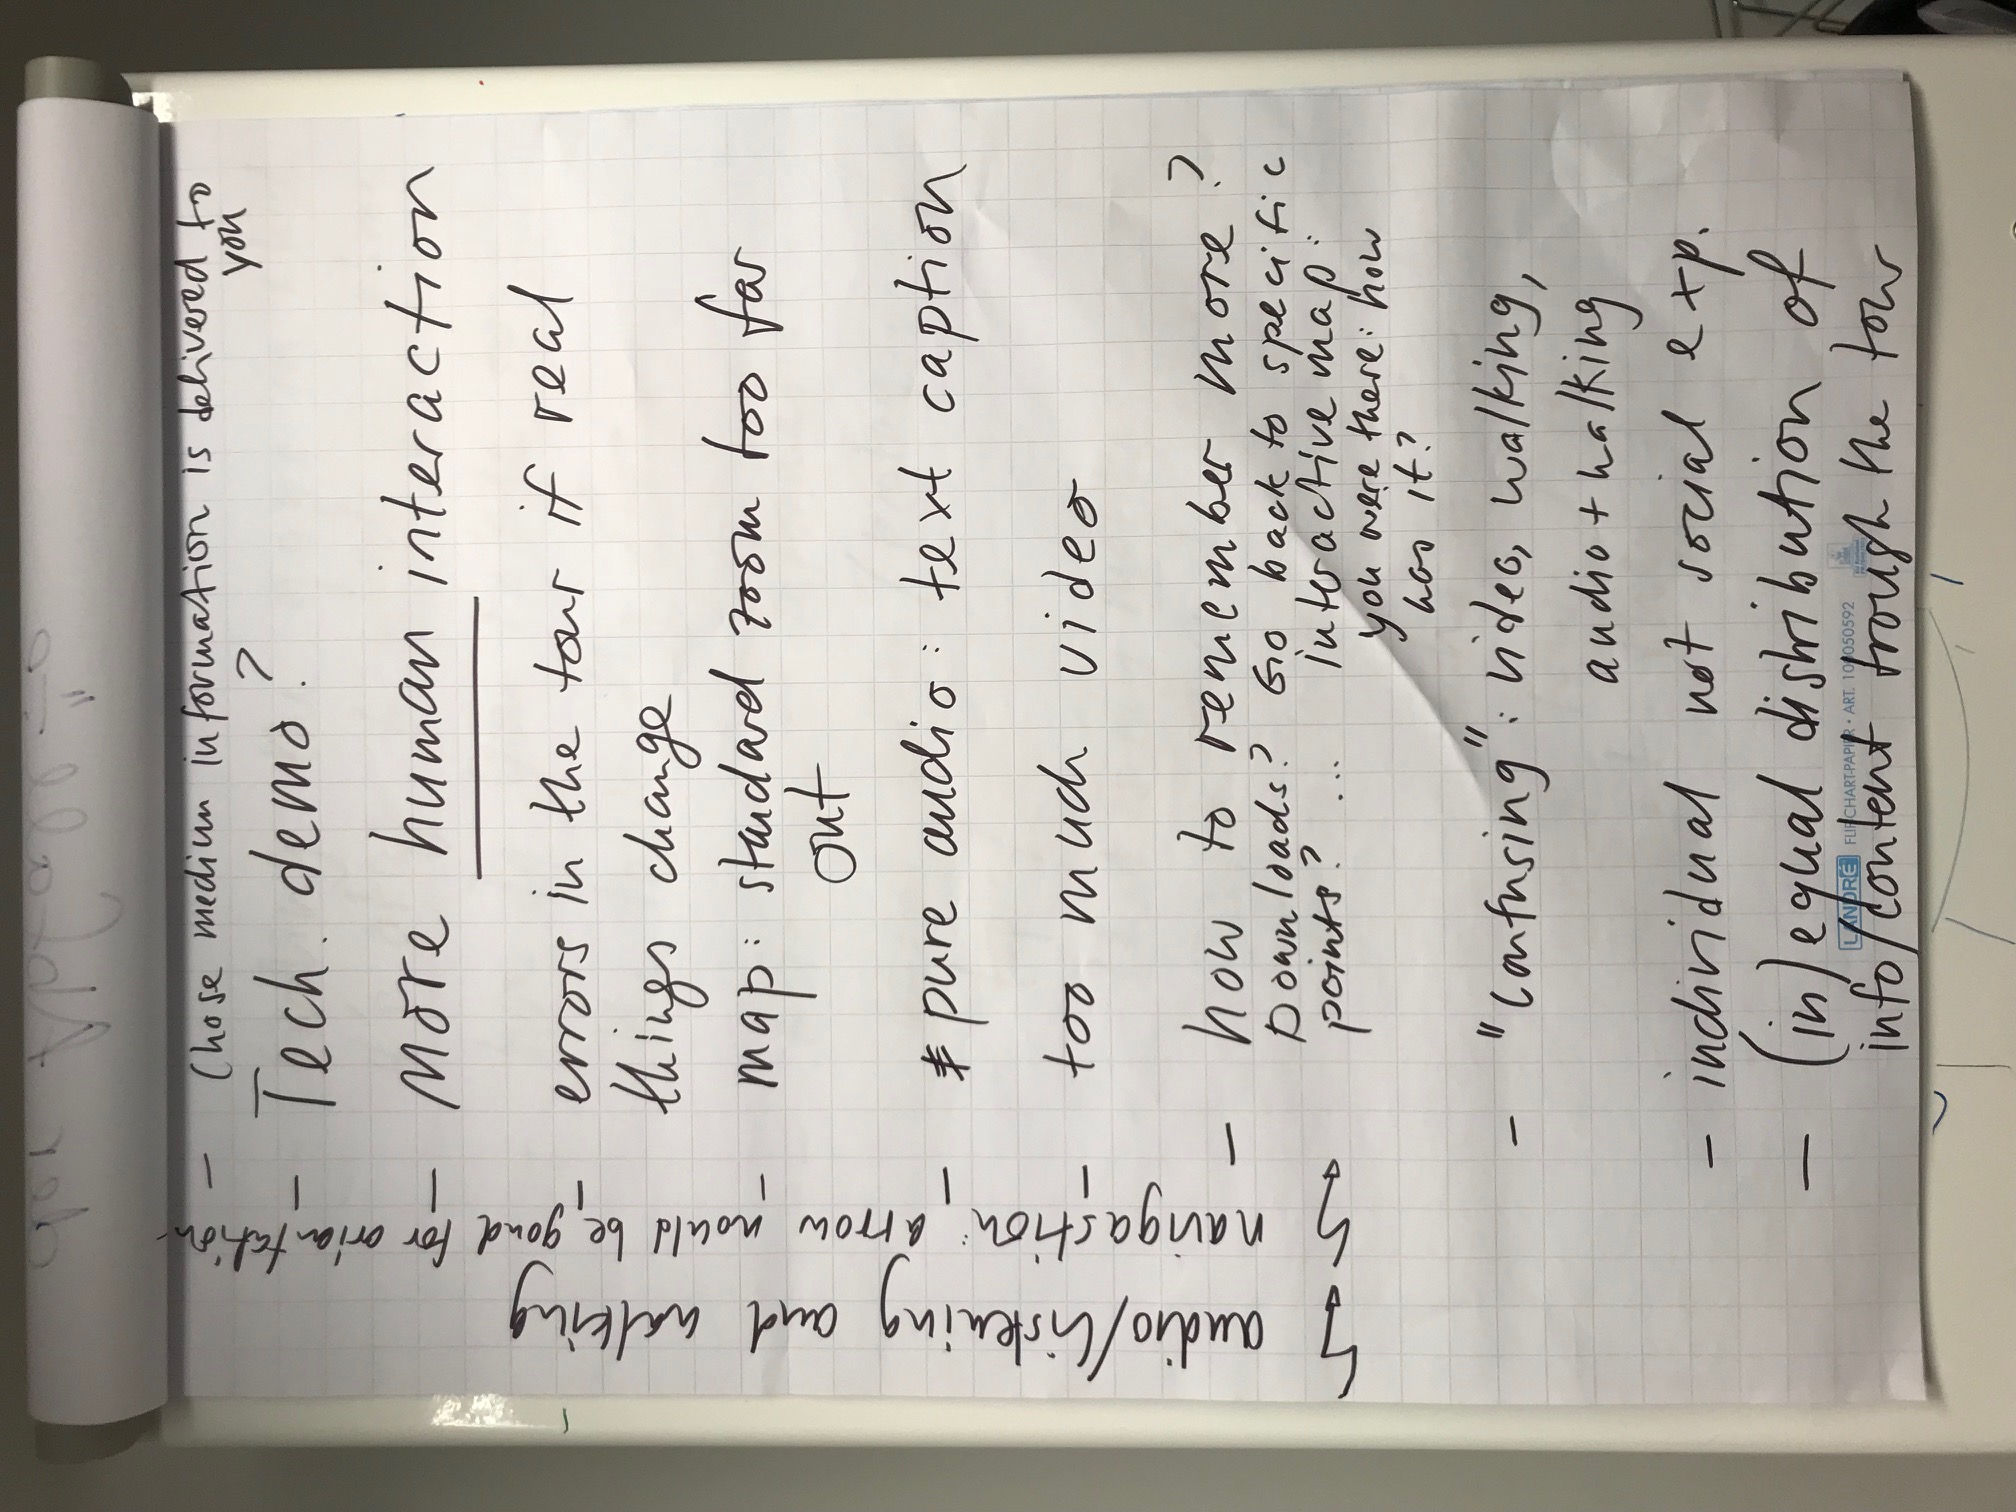 - Chose medium information is delivered to
you
- Tech. demo?
- More human interaction
- errors in the tour if real
things change
- map: standard zoom too far
out
- * pure audio: text caption
- too much video
- how to remember more?
Downloads? Go back to specific
points? ... interactive map:
you were there: how
was it?
- "Confusing": video, walking,
audio + walking
- individual not social exp.
- (in)equal distribution of
info/content trough the tour
navigastion: arrow would be good for oriantation
audio/listening and walking
LANDRÉ FLIPCHART-PAPIER · ART. 100050592